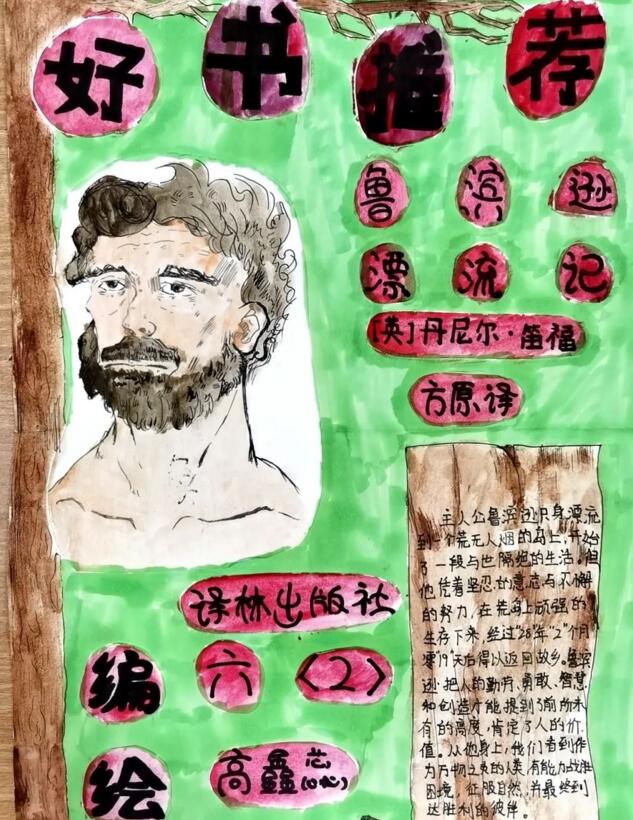 好书推荐
鲁滨逊
漂流记
[英]丹尼尔·笛福
方原译
主人公鲁滨逊只身漂流
到一个荒无人烟的岛上,开始
了一段与世隔绝的生活。但
他凭着坚忍的意志与不懈
的努力,在荒岛上顽强的
生存下来,经过"28"年"2"个月
零"19"天后得以返回故乡。鲁滨
逊把人的勤劳、勇敢、智慧
和创造才能提到了前所未
有的高度,肯定了人的价
值。从他身上,我们看到作
为万物之灵的人类,有能力战胜
困境,征服自然,并最终到
达胜利的彼岸。
译林出版社
编 六〈2〉
绘 高鑫芯